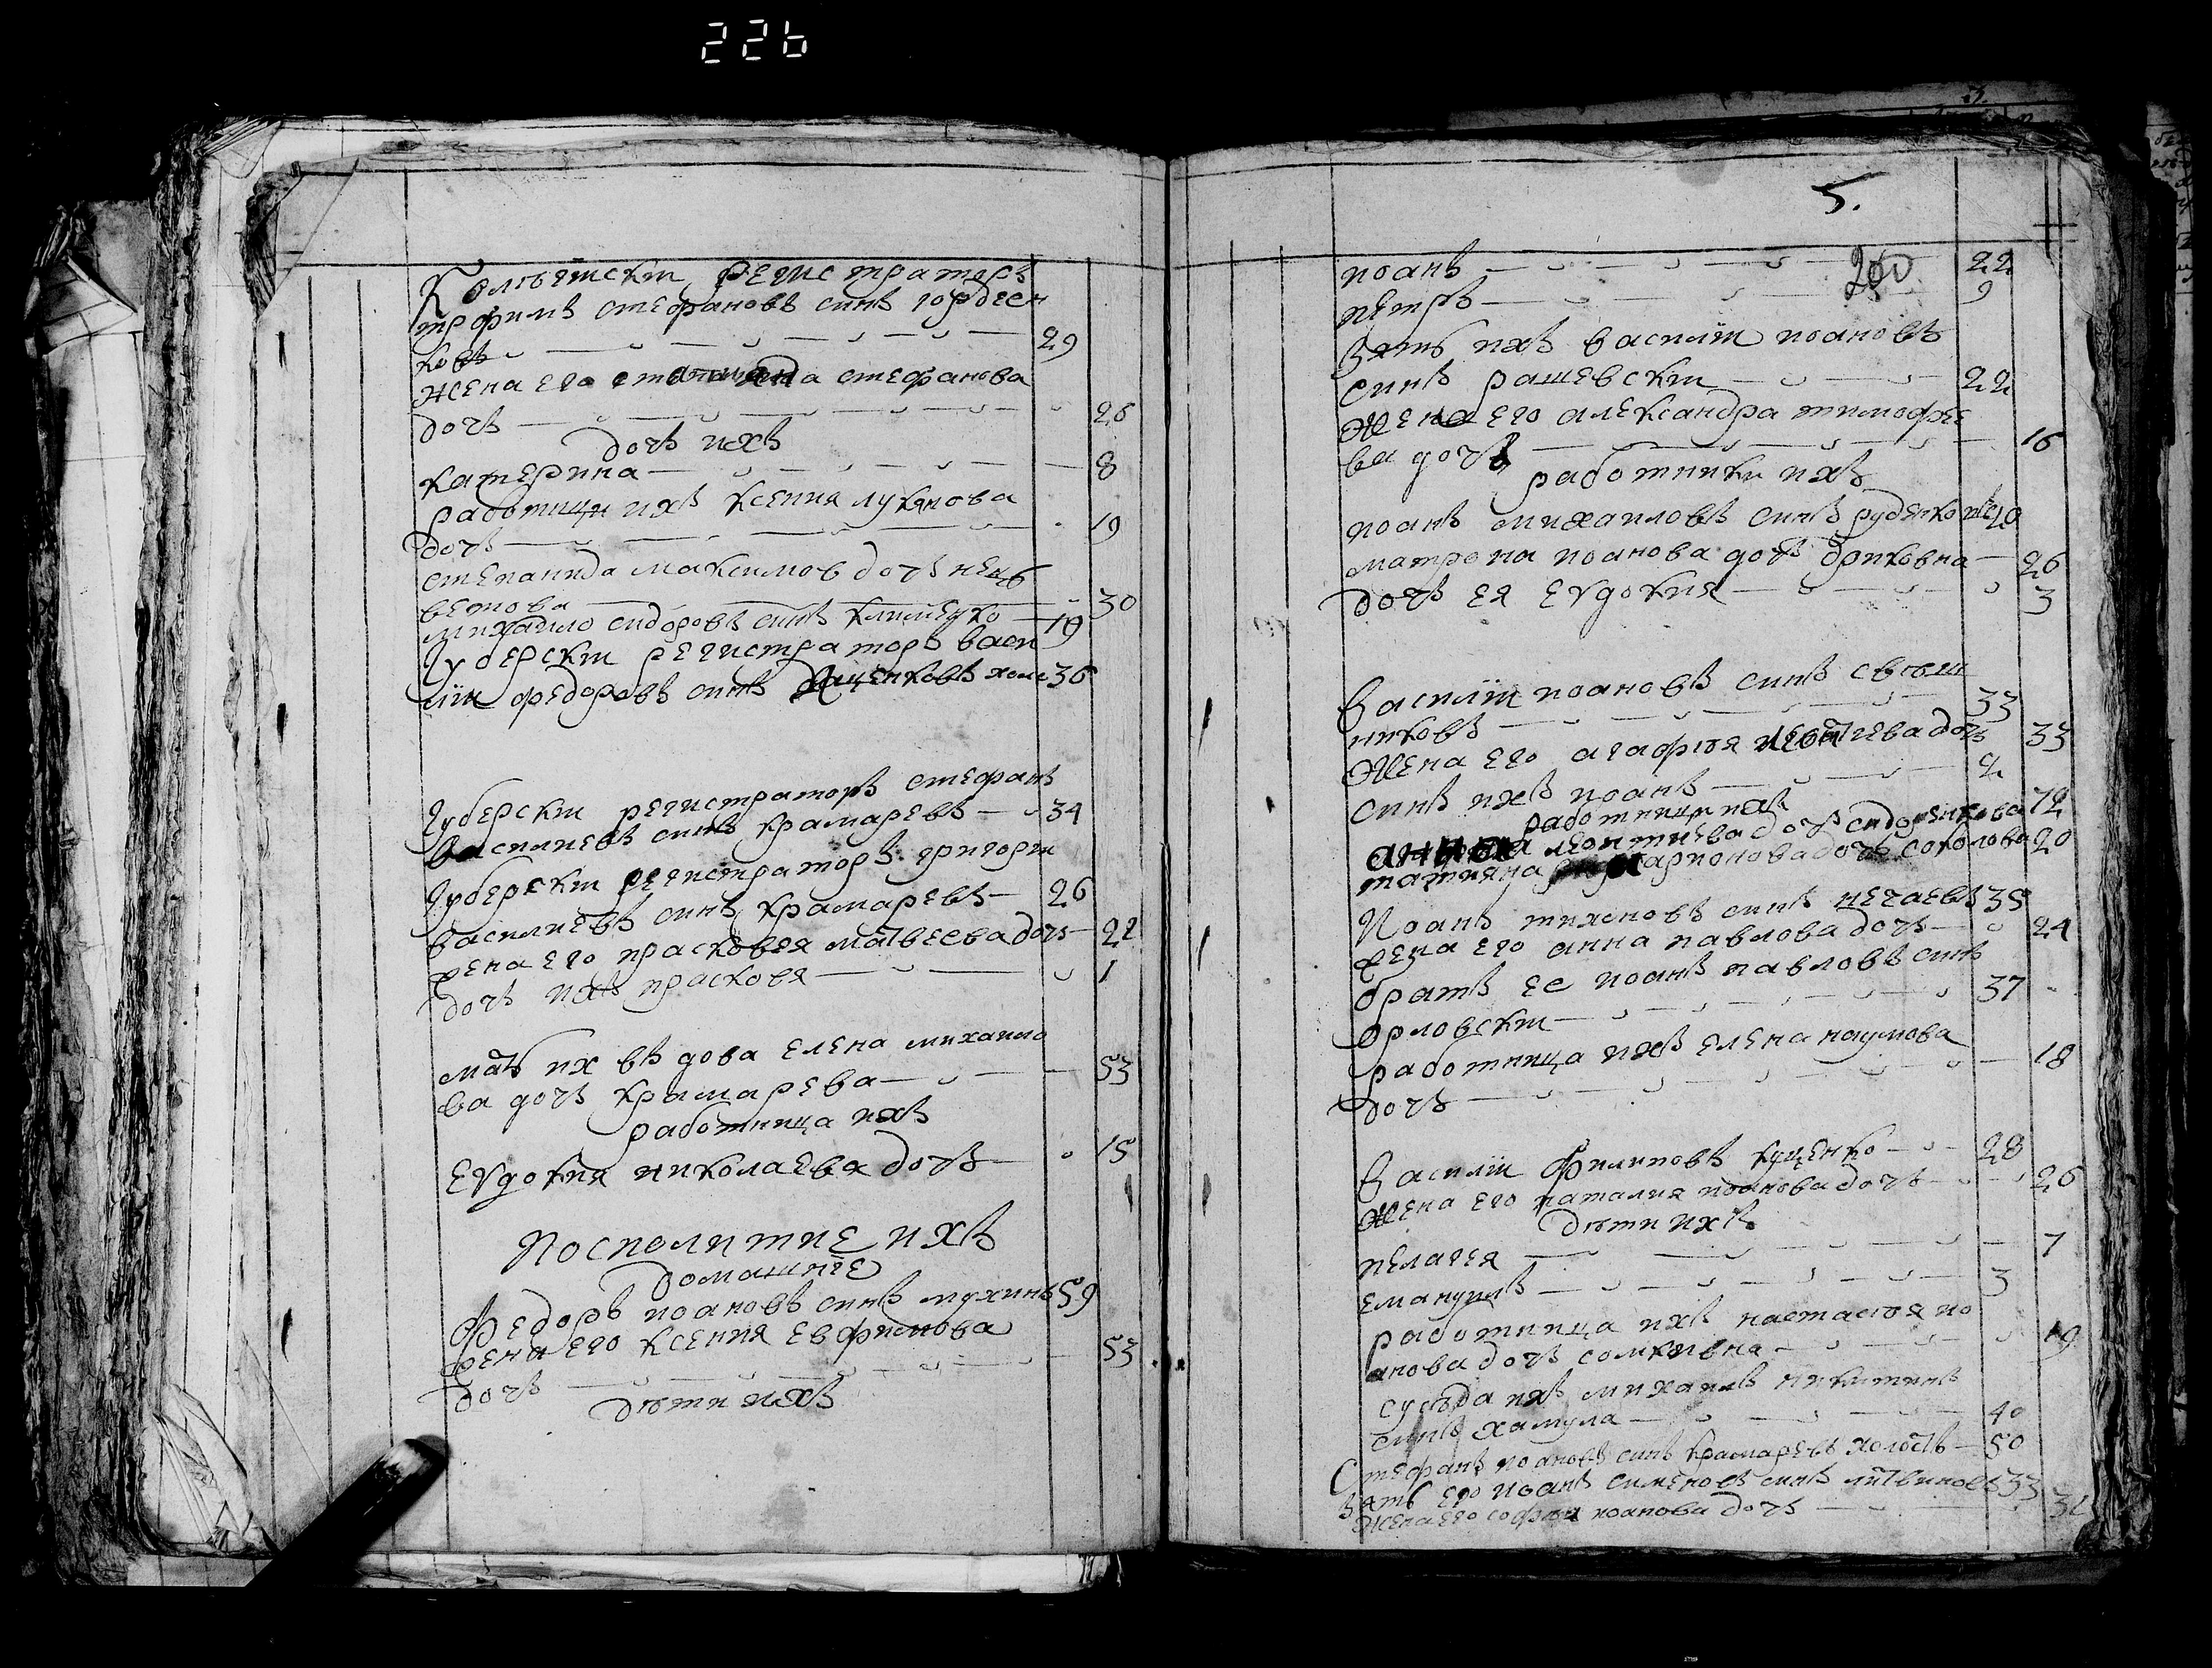 226
Колѣжски регистраторъ
трофимъ стефановъ синъ гордеен
ковъ 29
жена его стефанова
дочъ 26
дочъ ихъ
катерина 8
работници ихъ ксения лукянова
дочъ 19
степанида максимов дочъ
ветова 30
михайло сидоровъ синъ клименко 19
Губерски регистраторъ васи
лій федоровъ синъ холс 36
Губерски регистраторъ стефанъ
василиевъ синъ крамаревъ 34
Губерски регистраторъ григори
василиевъ синъ крамаревъ 26
жена его прасковея матвеева дочъ 22
дочъ ихъ прасковя 1
мать их въдова елена михайло
ва дочъ крамарева 53
работница ихъ
евдокия николаева дочъ 15
Посполитие ихъ
домашние
Федоръ иоановъ синъ мухинъ 59
жена его ксения евфимова
дочъ 53
дѣти ихъ
5.
200
иоанъ 22
петръ 9
зять ихъ василій иоановъ
синъ рашевски 22
Жена его александра тимофѣе
ва дочъ 16
работники ихъ
иоанъ михаиловъ синъ руденко 20
матрона иоанова дочъ бриковна 26
дочъ ея евдокия 3
Василій иоановъ синъ свѣш
никовъ 33
Жена его агафія дочъ 33
синъ ихъ иоанъ 2
работници ихъ
анна леонтиева дочъ сидоренкова 72
татияна дочъ соколова 20
Иоанъ синъ нечаевъ 35
жена его анна павлова дочъ 24
братъ ее иоанъ павловъ синъ
орловски 37
работница ихъ елена наумова
дочъ 18
Василій филиповъ куценко 28
Жена его наталия иоанова дочъ 26
дѣти ихъ
пелагея 7
емануилъ 3
работница ихъ настасія ио
анова дочъ сомковна 19
сусѣда ихъ михаилъ никитинъ
синъ хамула 40
Стефанъ иоановъ синъ крамаревъ холостъ 50
зять его иоанъ сименовъ синъ литвиновъ 33
Жена его софія иоанова дочъ 32